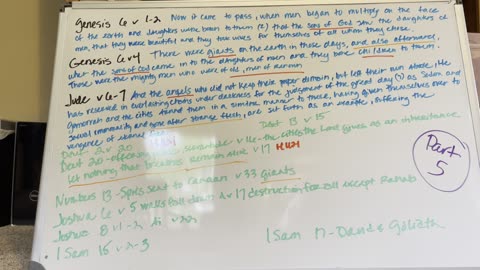 Genesis 6 v 1-2 Now it came to pass, when men began to multiply on the face
of the earth and daughters were born to them (2) that the sons of God saw the daughters of
men, that they were beautiful and they took wives for themselves of all whom they chose.
Genesis 6 v 4 There were giants on the earth in those days, and also afterward,
when the sons of God came in to the daughters of men and they bore children to them.
Those were the mighty men who were of old, men of renown.
Jude v 6-7 And the angels who did not keep their proper domain, but left their own abode, He
has reserved in everlasting chains under darkness for the judgment of the great day (7) as Sodom and
Gomorrah and the cities around them in a similar manner to these, having given themselves over to
sexual immorality and gone after strange flesh, are set forth as an example, suffering the
vengeance of eternal fire.
Deut 2 v 20
Deut 13 v 15
Deut 20 - offering v 16 - the cities the Lord gives as an inheritance
let nothing that breathes remain alive v 17
Numbers 13 - Spies sent to Canaan v 33 giants
Joshua 6 v 5 walls fall down v 17 destruction for all except Rahab
Joshua 8 v 1-2
1 Sam 15 v 2-3
1 Sam 17 - David & Goliath
Part
5